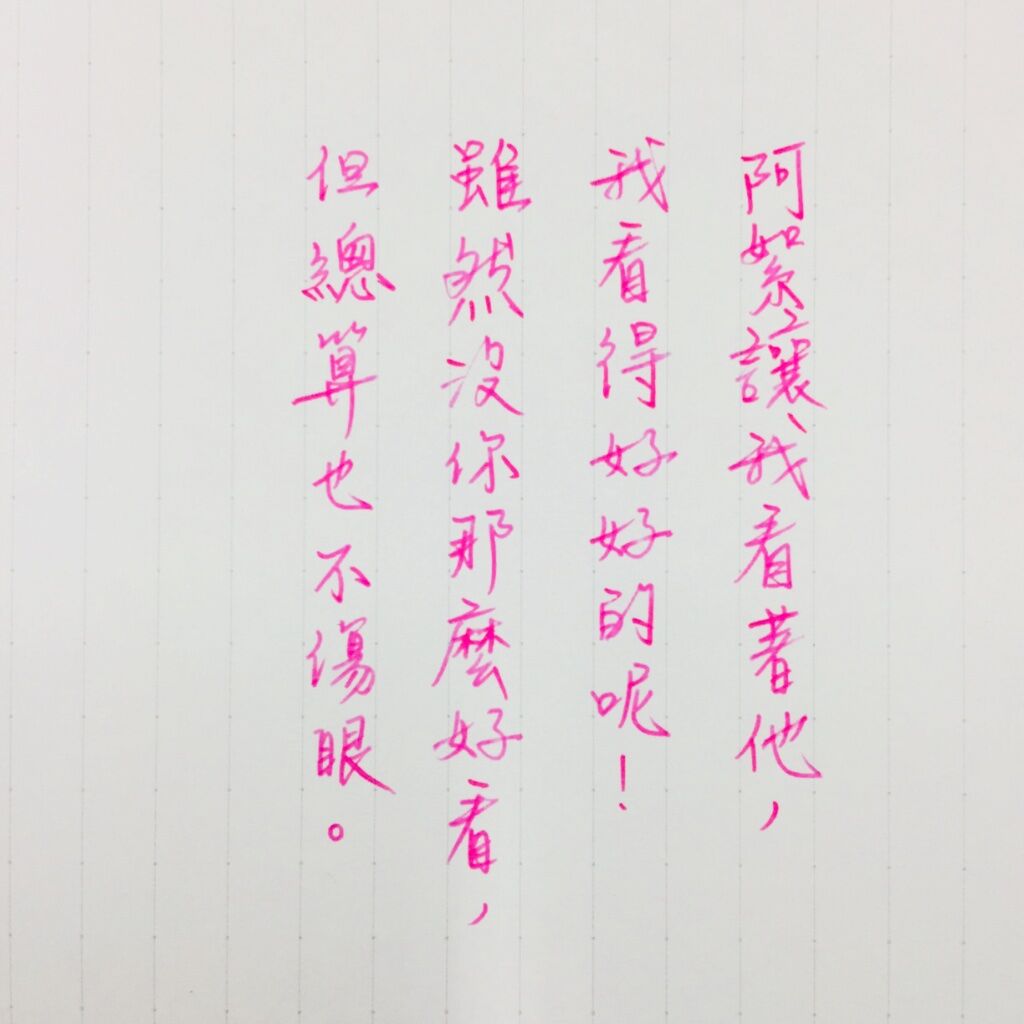 阿絮讓我看著他，
我看得好好的呢！
雖然沒你那麼好看，
但總算也不傷眼。